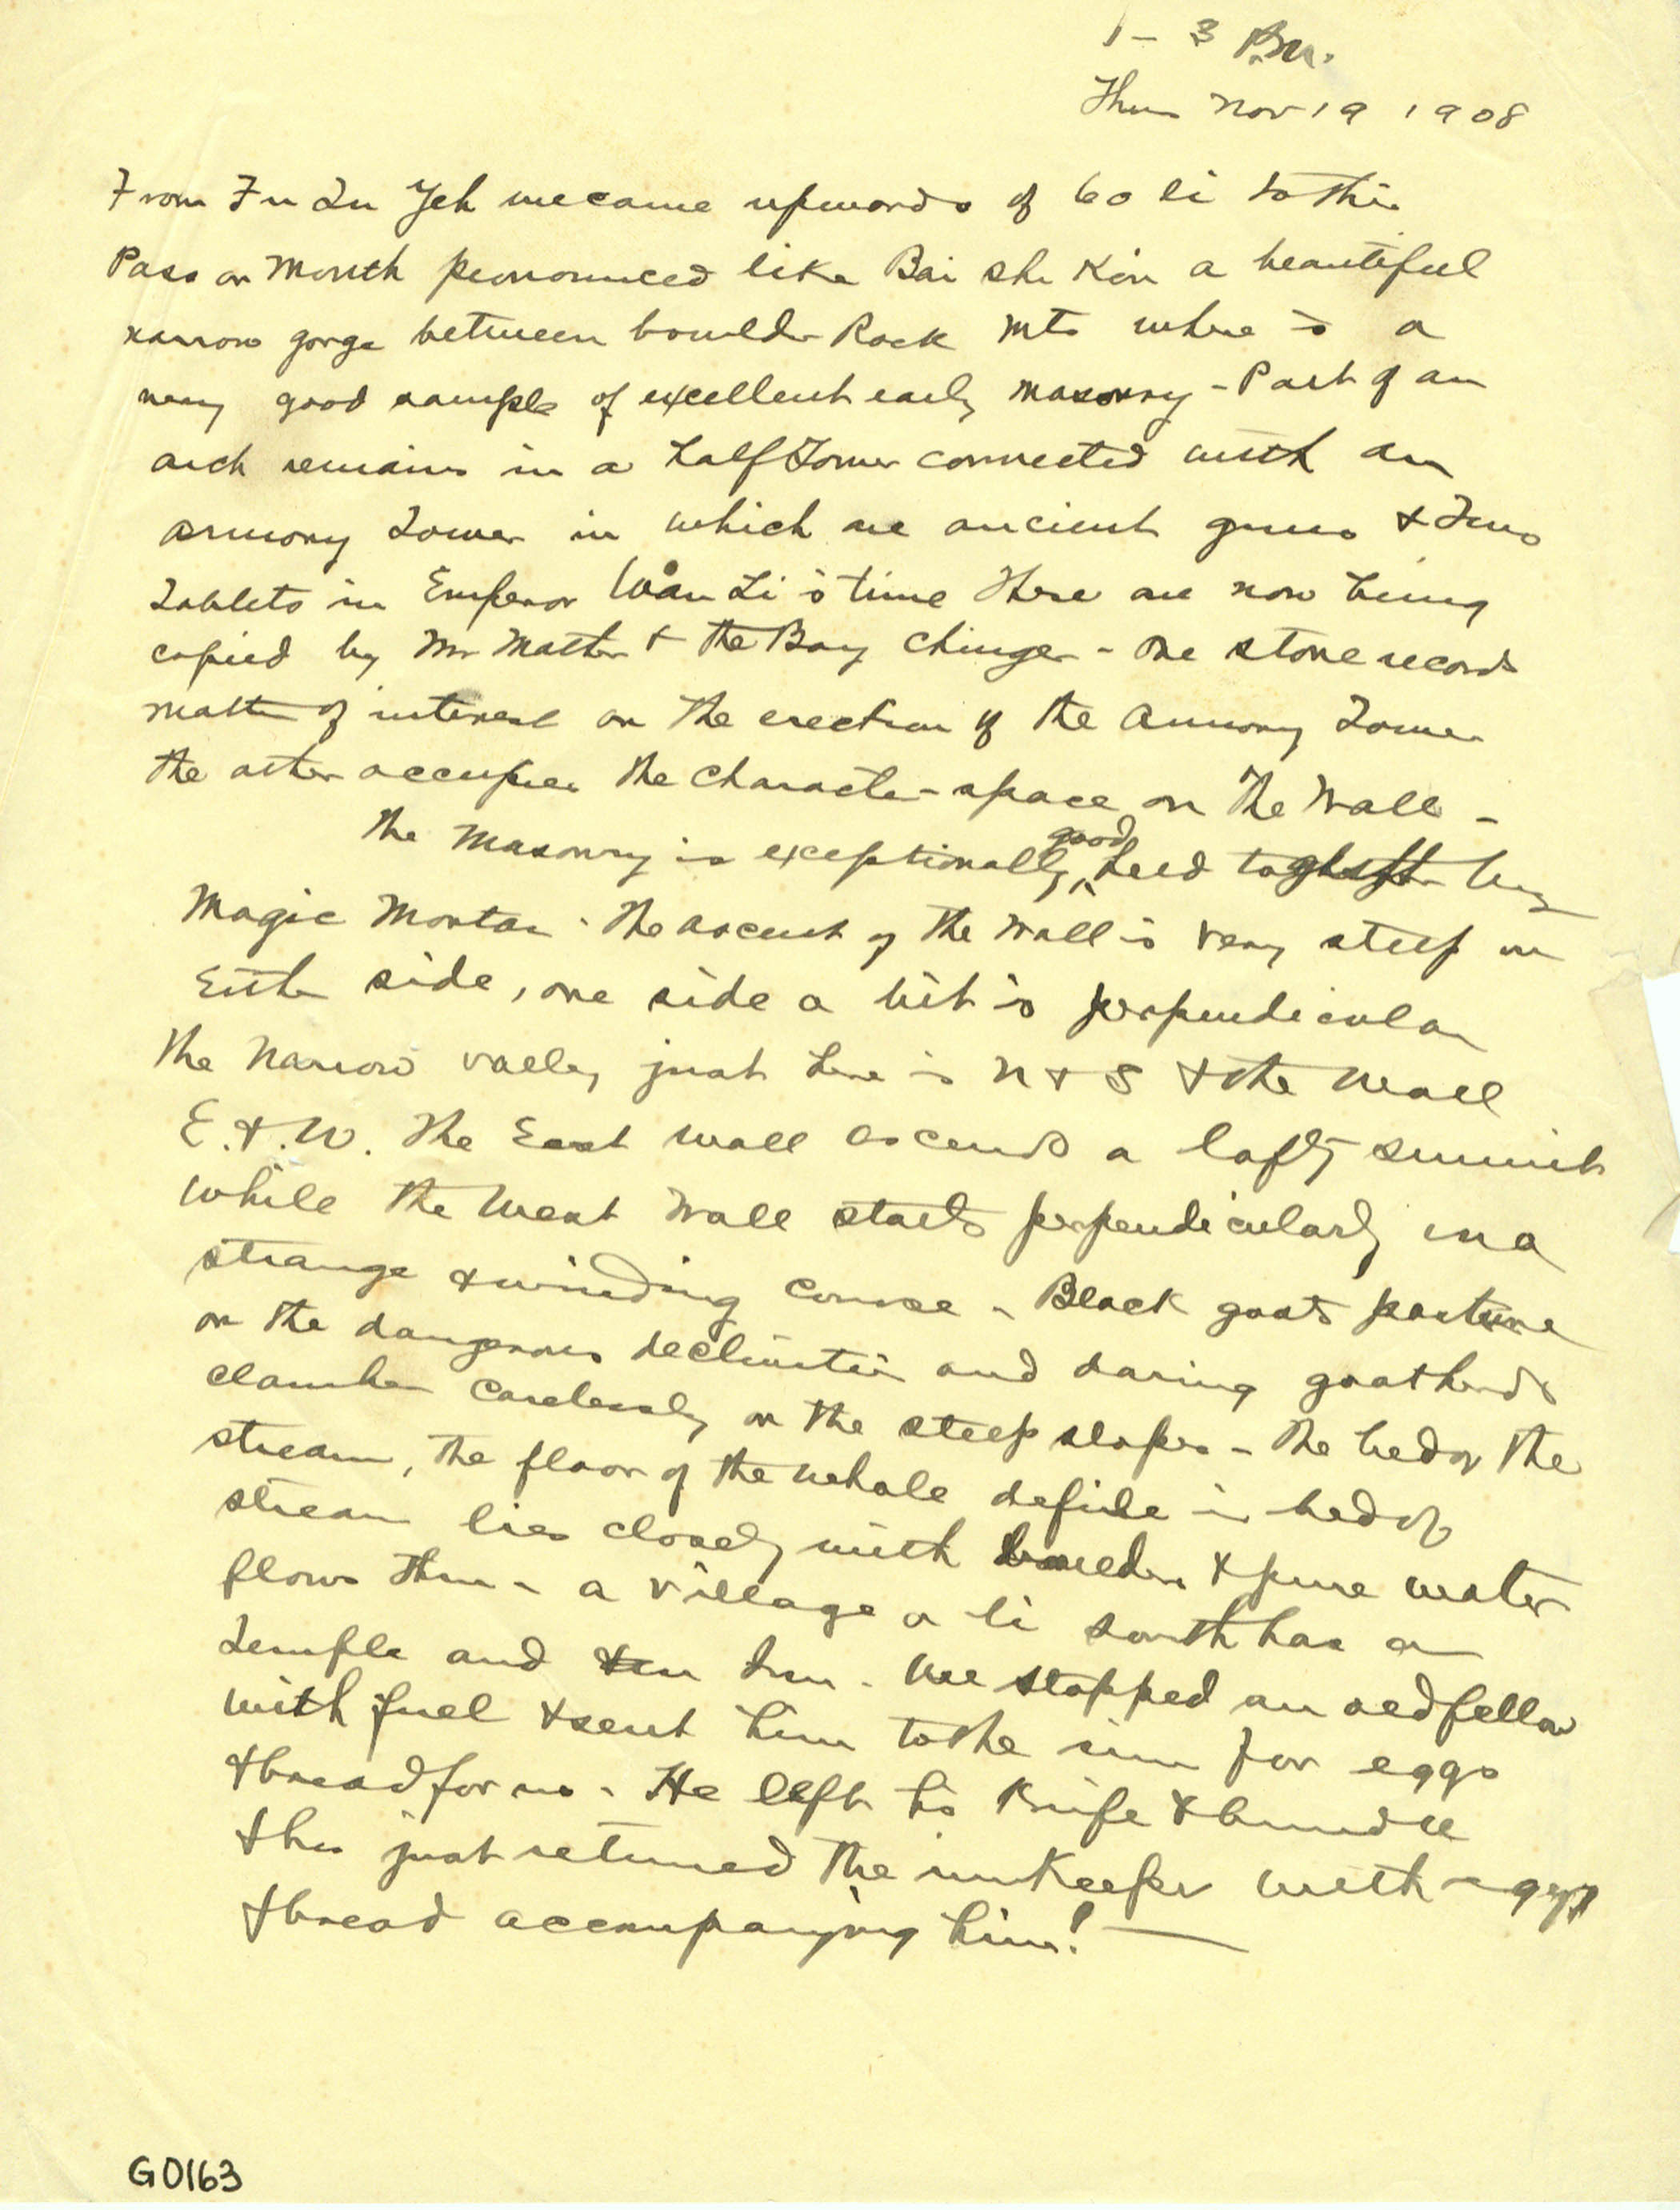 1 - 3 P.M.
Thurs Nov 19 1908
From Fu Tu Yeh we came upwards of 60 li to this
Pass or Mouth pronounced like Bai she Kou a beautiful
narrow gorge between boulder Rock Mts where is a
very good sample of excellent early masonry - Part of an
arch remains in a half Tower connected with an
armory Tower in which are ancient guns & Two
Tablets in Emperor Wan Li's time These are now being
copied by Mr Mather & the Boy Chinger - One stone records
matter of interest on the erection of the Armory Tower
the other occupies the Character-space on the Wall -
The Masonry is exceptionally good held together by
Magic Mortar - The ascent of the Wall is very steep on
Either side, one side a bit is perpendicular
The Narrow valley just here is N & S & the Wall
E. & W. The East wall ascends a lofty summit
while the West Wall starts perpendicularly in a
strange & winding course - Black goats pasture
on the dangerous declivities and daring goatherds
clamber carelessly on the steep slopes - The bed of the
stream, the floor of the whole defile is bed of
stream lies closely with boulders & pure water
flows thru - a village a li south has a
Temple and Inn - We stopped an old fellow
with fuel & sent him to the inn for eggs
& bread for us - He left his Knife & bundle
& has just returned the innkeeper with eggs
& bread accompanying him! -
G0163